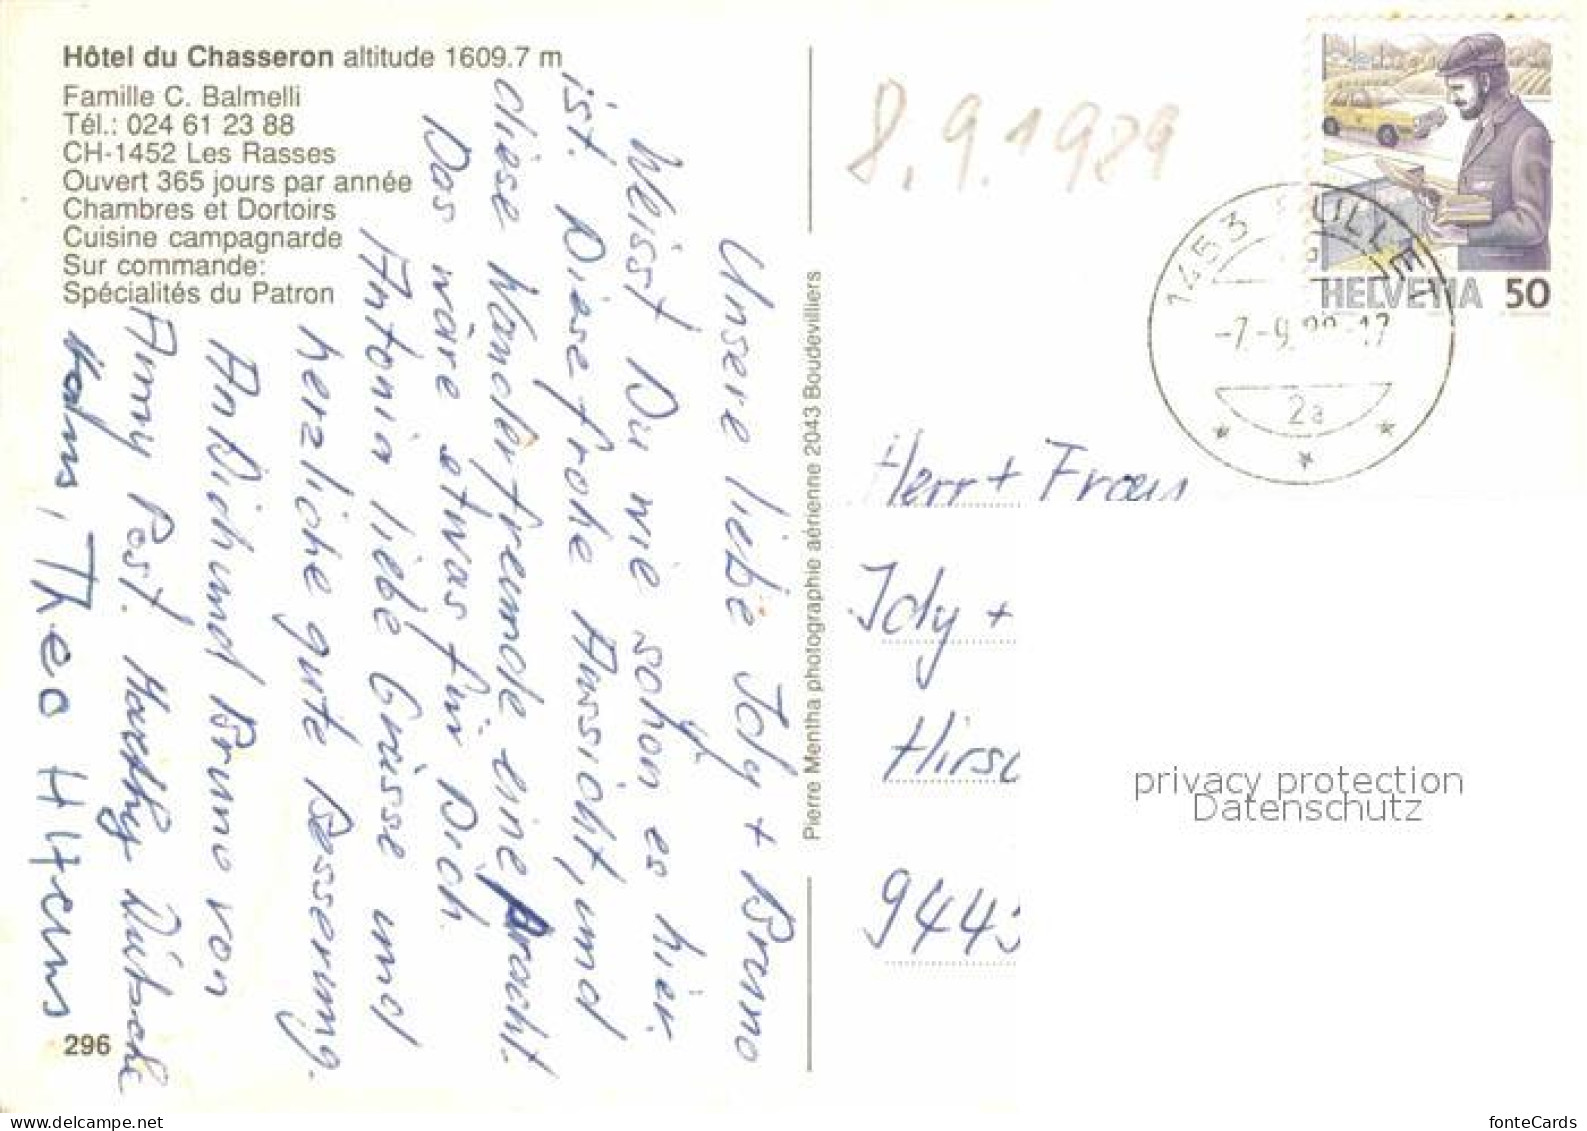 Hôtel du Chasseron altitude 1609.7 m
Famille C. Balmelli
Tél.: 024 61 23 88
CH-1452 Les Rasses
Ouvert 365 jours par année
Chambres et Dortoirs
Cuisine campagnarde
Sur commande:
Spécialités du Patron
Unsere liebe Idy + Bruno
Weisst Du wie schon es hier
ist. Diese frohe Aussicht, und
diese Wanderfreunde eine Pracht.
Das wäre etwas für Dich.
Antonia liebe Grüsse und
herzliche gute Besserung.
An Dich und Bruno von
Anny Post. Marthy
Hans, Theo
296
Pierre Mentha photographie aérienne 2043 Boudevilliers
8.9.1989
HELVETIA 50
1453 BULLET
-7.-9. -17
2a
Herr + Frau
Idy +
Hirsc
9443
privacy protection
Datenschutz
fonteCards